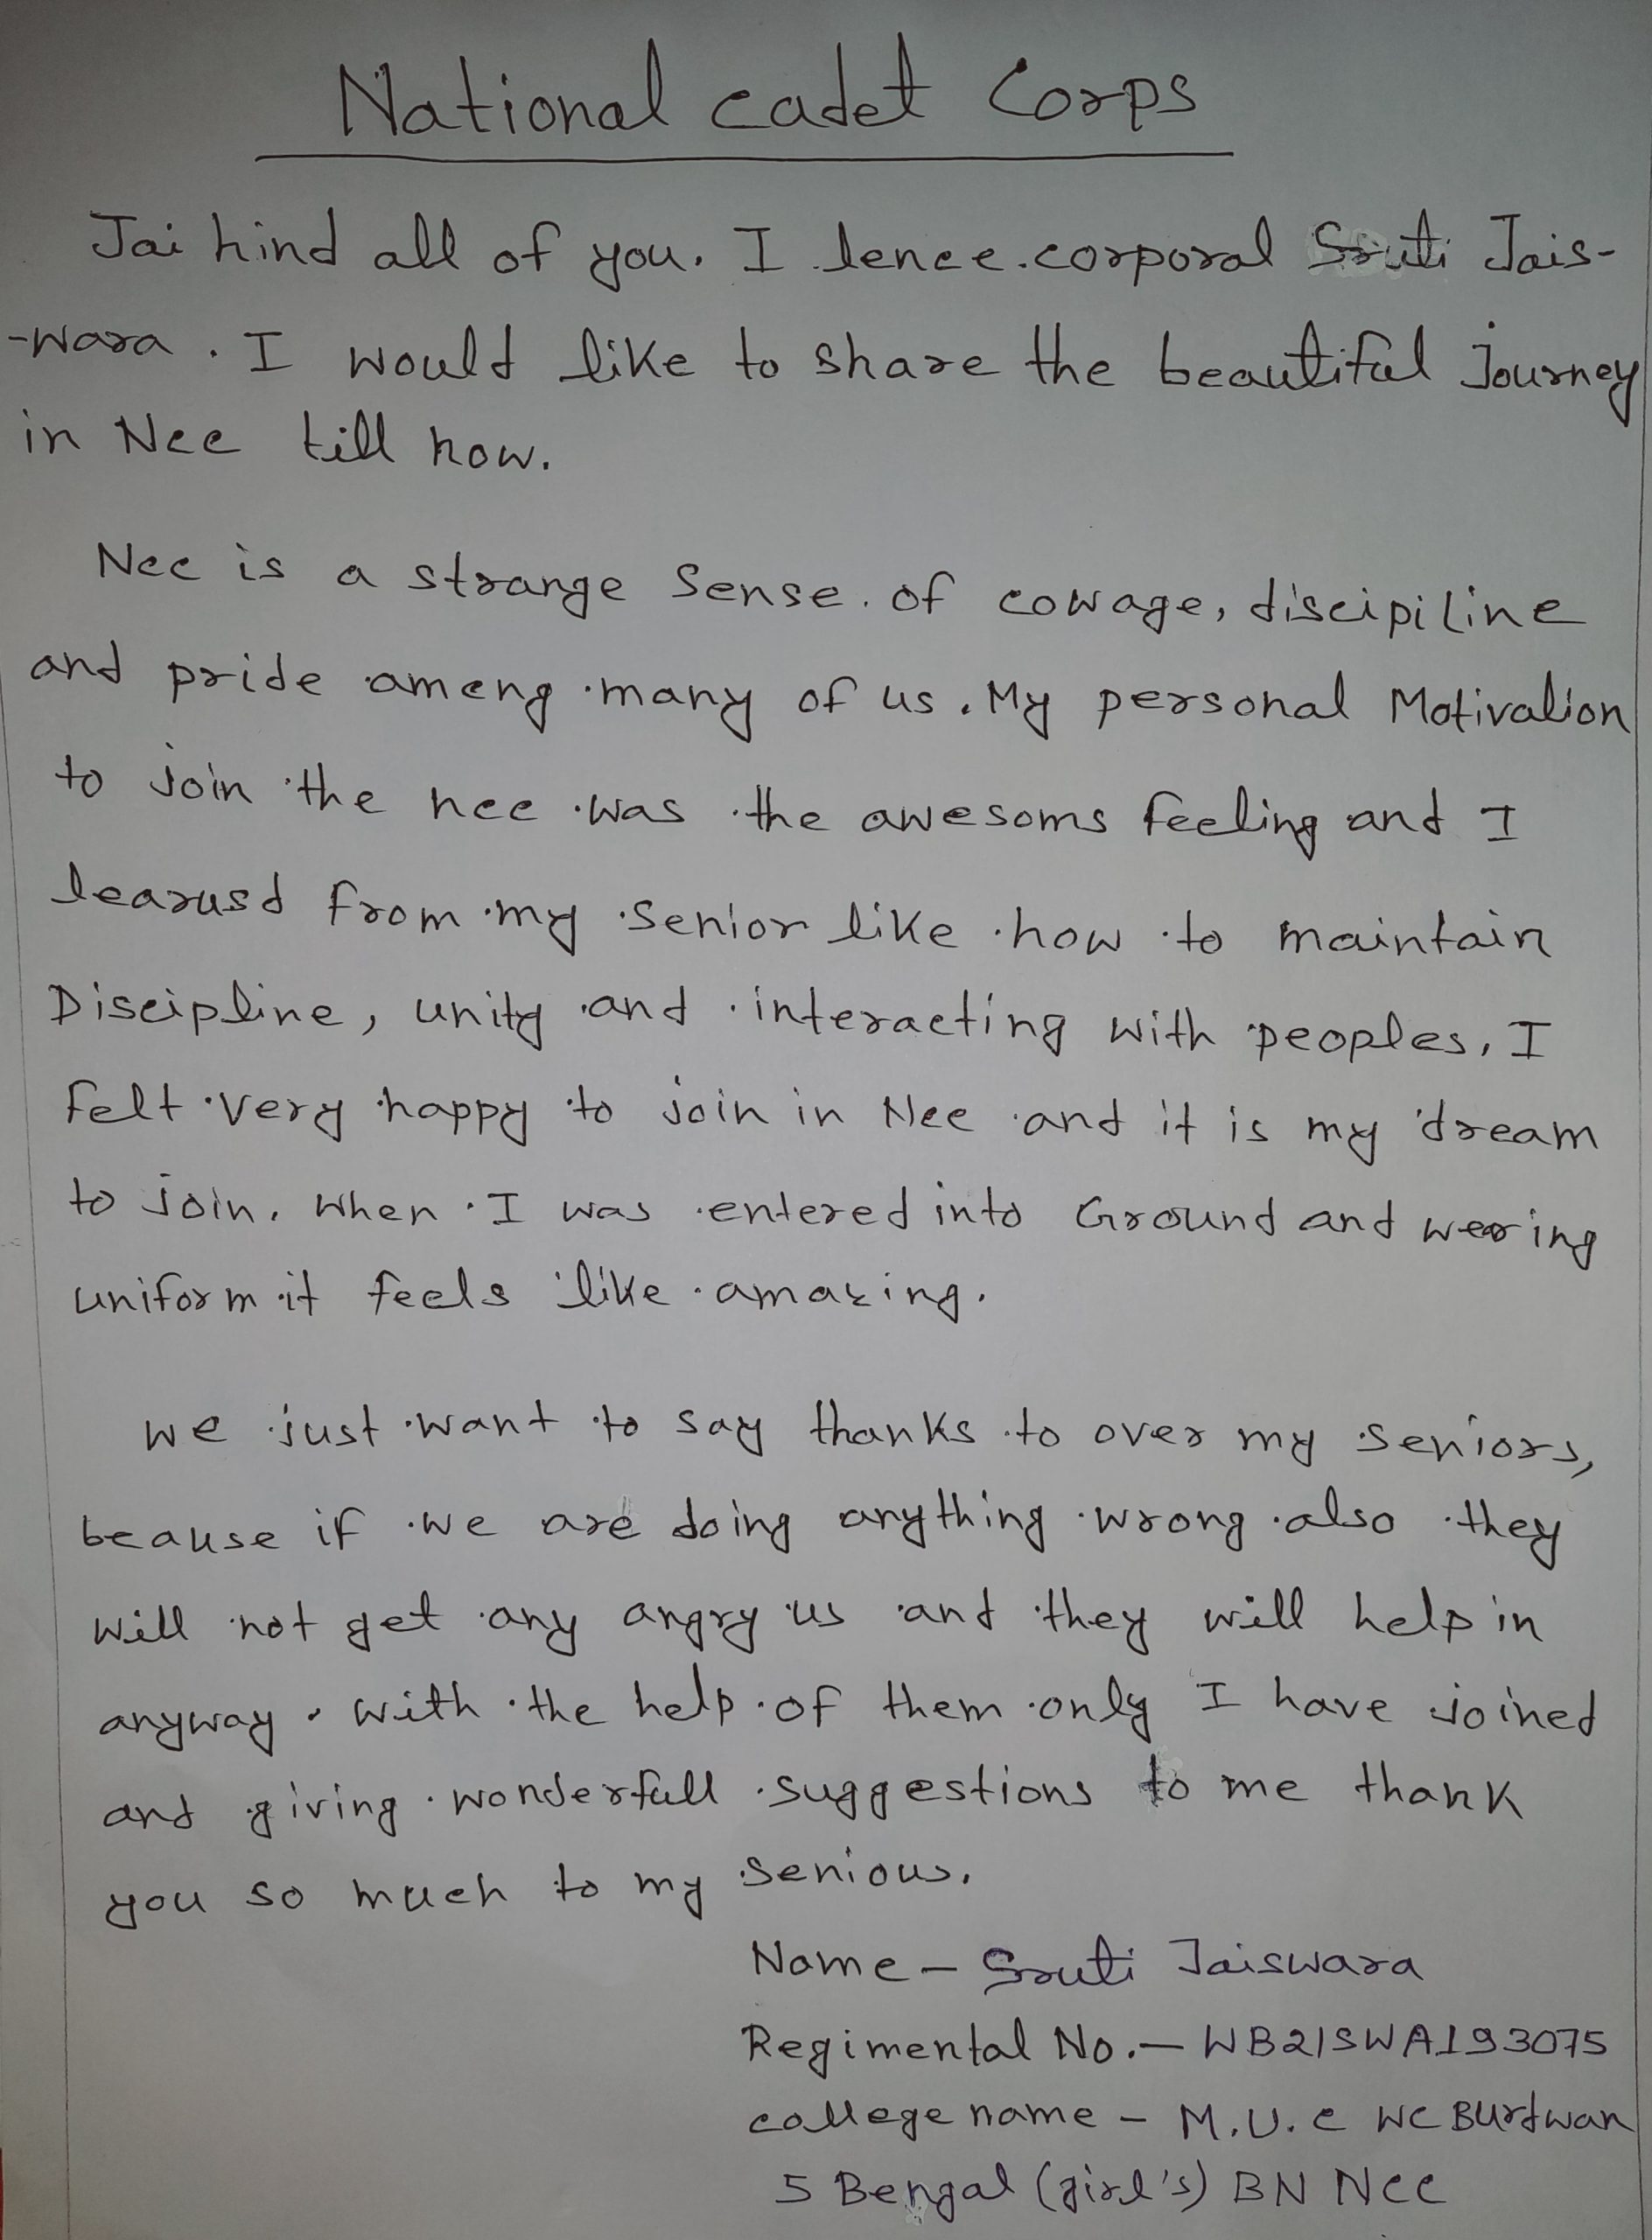 National cadet Corps
Jai hind all of you. I lence.corporal Sruti Jais-
-wara. I would like to share the beautiful Journey
in Ncc till now.
Ncc is a strange Sense. of cowage, discipiline
and pride ameng many of us. My personal Motivation
to join the ncc was the awesoms feeling and I
learusd from my senior like how to maintain
Discipline, unity and interacting with peoples. I
felt very happy to join in Ncc and it is my dream
to join. When I was entered into Ground and wearing
uniform it feels like amazing.
we just want to say thanks to over my seniors,
beause if we are doing anything wrong also they
will not get any angry us and they will help in
anyway. with the help of them only I have joined
and giving wonderfull suggestions to me thank
you so much to my senious.
Name - Sruti Jaiswara
Regimental No. - WB21SWA193075
college name - M.U.C WC Burdwan
5 Bengal (girl's) BN NCC